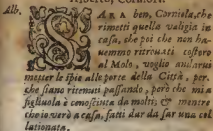 Alb. SARA ben, Corniola, che
rimetti quella valigia in
casa, che poi che non ha-
uemmo ritrouati costoro
al Molo, voglio andarui
metter le spie alle porte della Città, per-
che siano ritenuti passando, però che mi a
figliuola è conosciuta da molti; & mentre
che io verò a casa, fatti dar da far una col
latione.